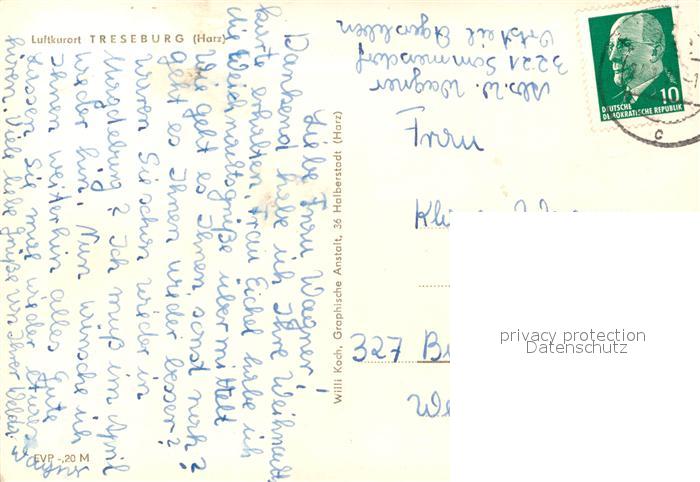 Luftkurort TRESEBURG (Harz)
Liebe Frau Wagner!
Dankend habe ich Ihre Weihnachts
karte erhalten, Frau Eichel habe ich
die Weihnachtsgrüße übermittelt
Wie geht es Ihnen sonst noch?
geht es Ihnen wieder besser?
waren Sie schon wieder in
Magdeburg? Ich muß im April
wieder hin. Nun wünsche ich
Ihnen weiterhin alles Gute
Lassen Sie mal wieder etwas
hören. Viele liebe Grüße von Ihrer
EVP -,20 M
Willi Koch, Graphische Anstalt, 36 Halberstadt (Harz)
Abs. W. Wagner
3221 Sommersdorf
Ortsteil
DEUTSCHE
DEMOKRATISCHE REPUBLIK
10
c
Frau
327
privacy protection
Datenschutz